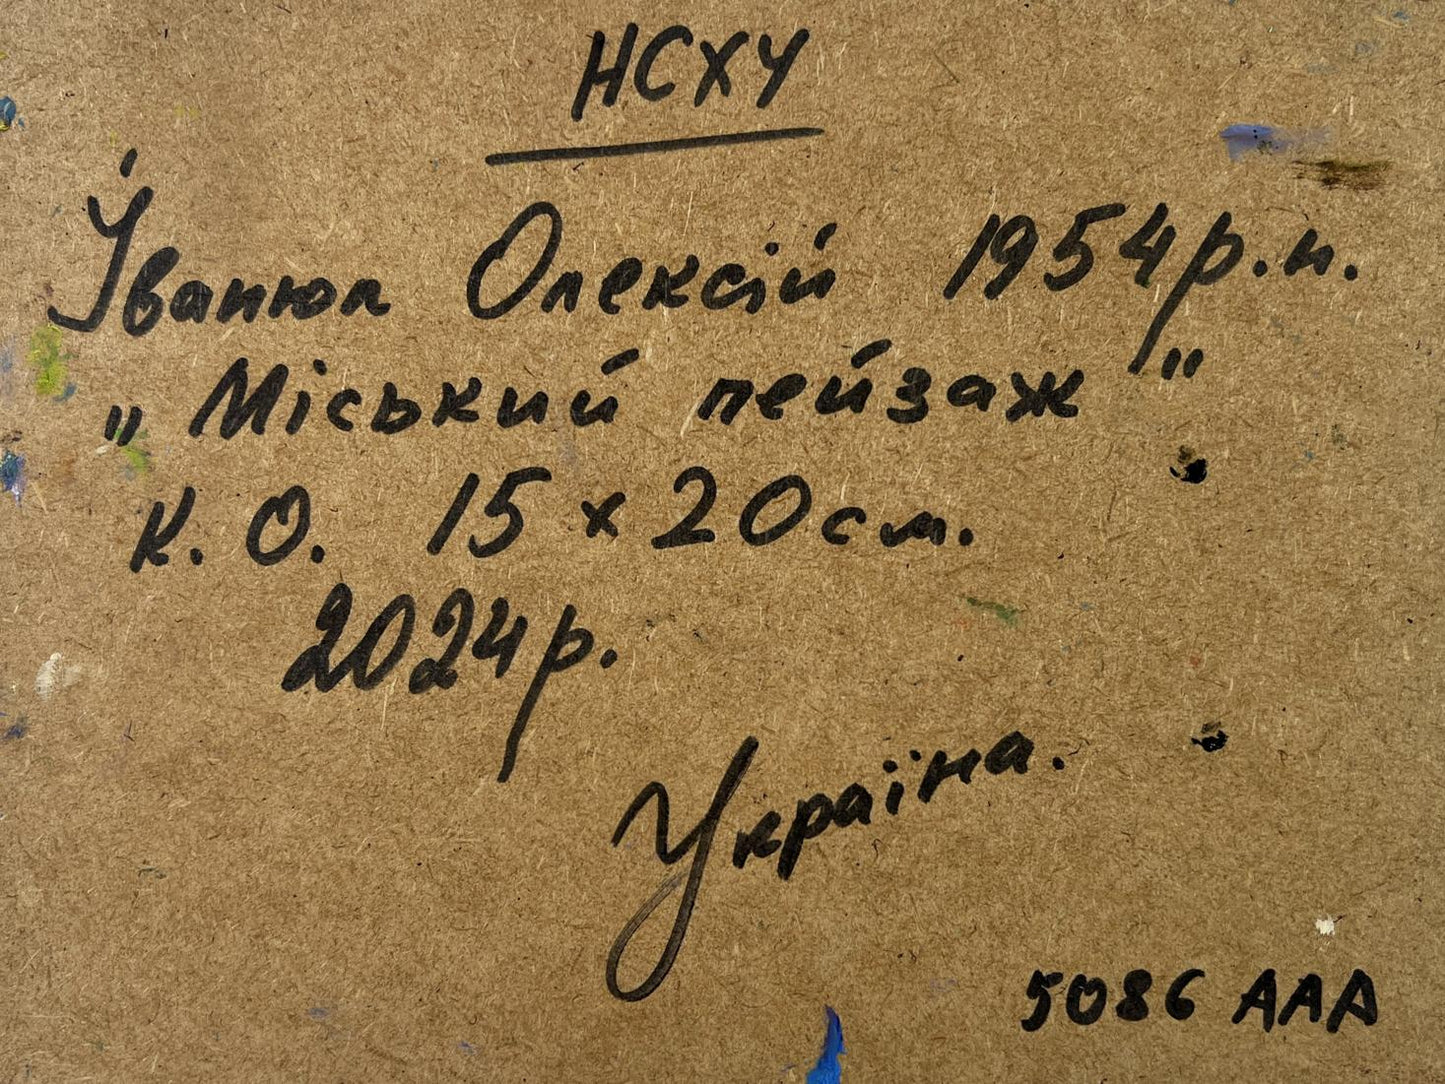 НСХУ
Іванюк Олексій 1954р.н.
„Міський пейзаж"
к. О. 15 х 20см.
2024р.
Україна.
5086 AAA